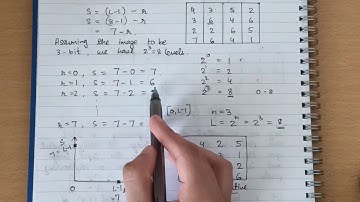 S = (L-1) - r
S = (8-1) - r
= 7 - r
Assuming the image to be
3-bit, we have 2³=8 levels.
r=0, S = 7-0 = 7
r=1, S = 7-1 = 6
r=2, S = 7-2 =
r=7, S = 7-7 =
[0, L-1]
4 3 5 2
3 6 4 6
2 2 6 5
7 6 4 1
2⁰ = 1
2¹ = 2
2² = 4
2³ = 8 0-8
n = 3
L = 2ⁿ = 2³ = 8
S
7= L-1
0
L-1
=7
4 2 5
1
2
6